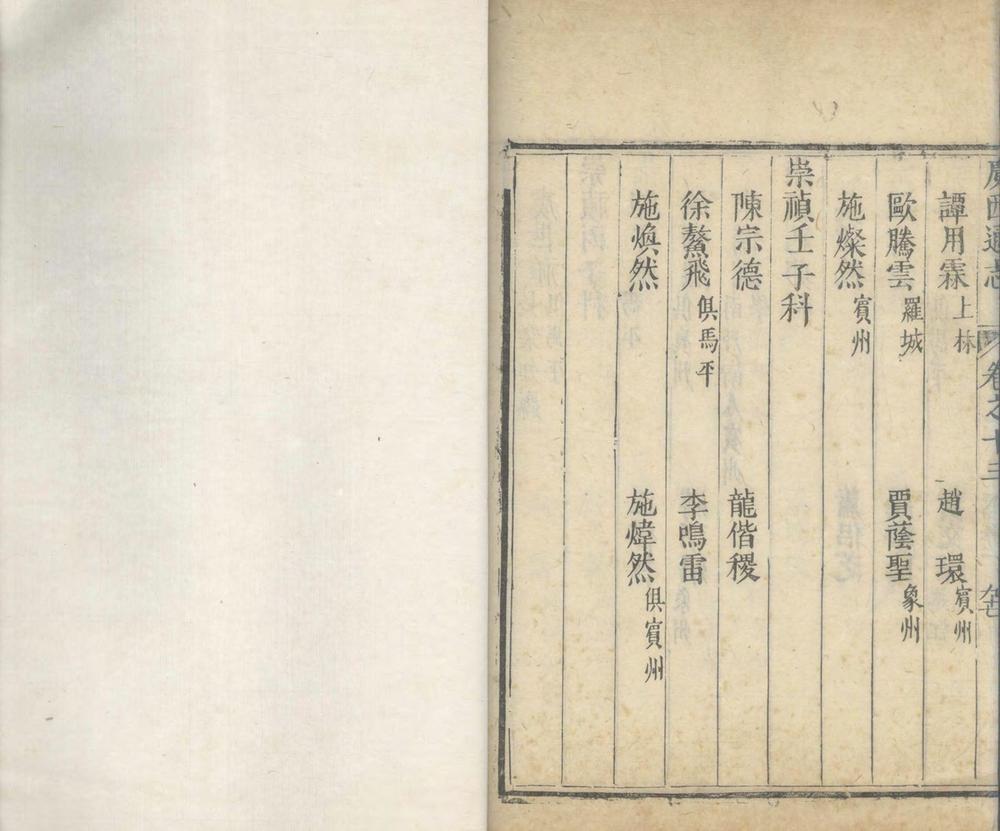 廣西通志 卷之十三
譚用霖上林 趙環賓州
歐騰雲羅城 賈蔭聖象州
施燦然賓州
崇禎壬子科
陳宗德 龍偕稷
徐鰲飛俱馬平 李鳴雷
施煥然 施煒然俱賓州